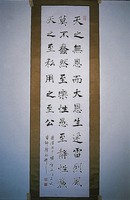 天之無恩而大恩生迅雷烈風
莫不蠢然至樂性愚至靜性廉
天之至私用之至公